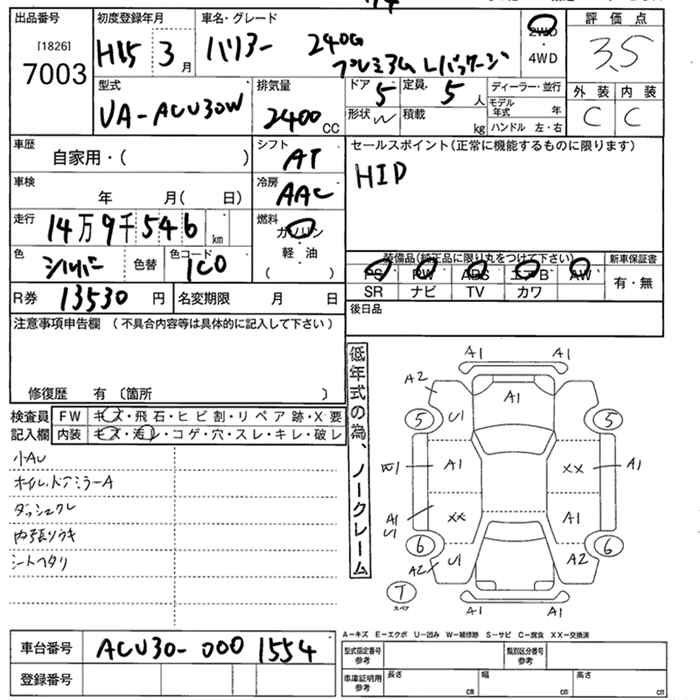 出品番号 初度登録年月 車名・グレード 評価点
[1826]
7003
H15 3月 ハリアー 240G
プレミアム Lパッケージ
2WD
4WD
3.5
型式 排気量 ドア 定員 ディーラー・並行 外装 内装
UA-ACU30W 2400CC 5 5人 モデル年式 年 C C
形状 W 積載 kg ハンドル 左・右
車歴 自家用・( ) シフト AT セールスポイント(正常に機能するものに限ります)
HID
車検 年 月( 日) 冷房 AAC
走行 14万9千546km 燃料 ガソリン
軽・油
( )
色 シルバー 色替 色コード 1C0 装備品(純正品に限り丸をつけて下さい) 新車保証書
PS PW ABS エアB AW 有・無
SR ナビ TV カワ
R券 13530円 名変期限 月 日 後日品
注意事項申告欄 (不具合内容等は具体的に記入して下さい)
修復歴 有〔箇所 〕
検査員 FW キズ・飛石・ヒビ割・リペア跡・X要
記入欄 内装 キズ・汚レ・コゲ・穴・スレ・キレ・破レ
小AU
オイル、ドアミラーA
ダッシュクレ
内張りウキ
シートヘタリ
低年式の為、ノークレーム
A1 A1
A2 A1
5 U1 5
W1 A1 XX A1
A1
U1 XX A1
6 6
A2 U1 A2
T
スペア
A1 A1
A-キズ E-エクボ U-凹み W-補修跡 S-サビ C-腐食 XX-交換済
車台番号 ACU30-0001554 型式指定番号 参考 類別区分番号 参考
登録番号 車庫証明用 参考 長さ cm 幅 cm 高さ cm